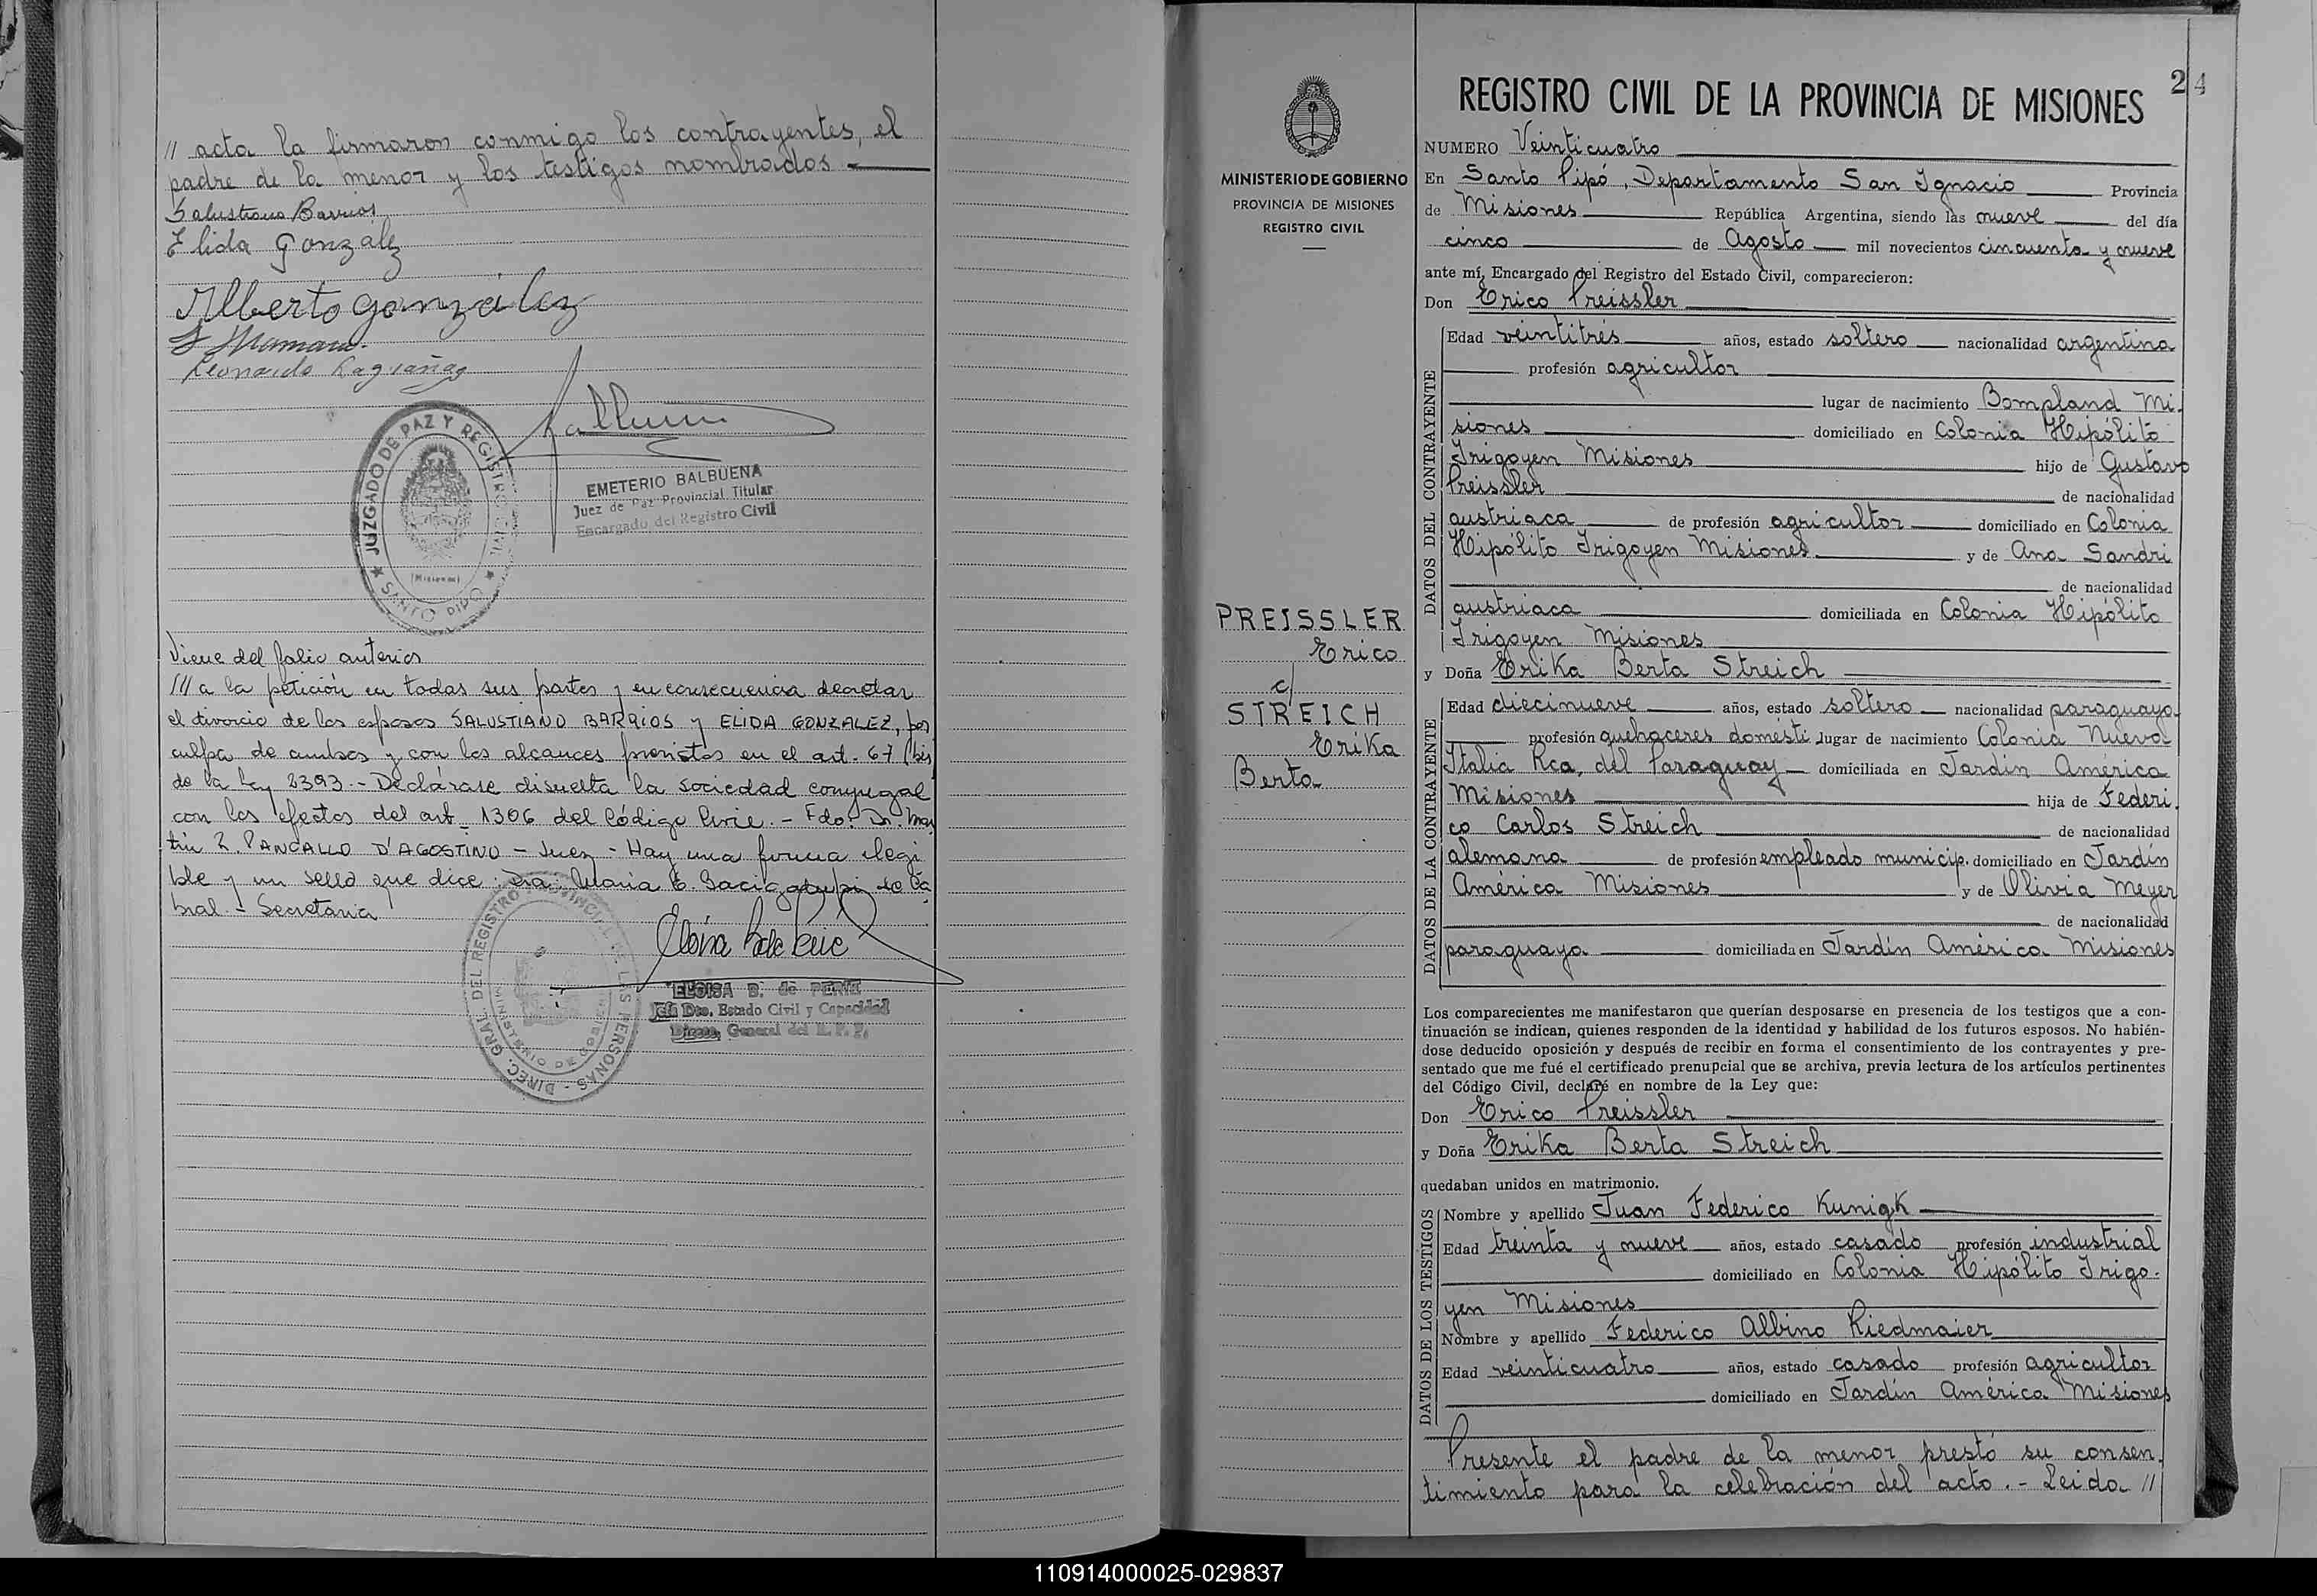 // acta la firmaron conmigo los contrayentes, el
padre de la menor y los testigos nombrados
Salustiano Barrios
Elida González
Alberto gonzález
Leonardo
JUZGADO DE PAZ Y REGISTRO CIVIL
(Misiones)
★ SANTO PIPO ★
EMETERIO BALBUENA
Juez de Paz Provincial Titular
Encargado del Registro Civil
Viene del folio anterior
/// a la petición en todas sus partes y en consecuencia decretar
el divorcio de los esposos SALUSTIANO BARRIOS y ELIDA GONZALEZ, por
culpa de ambos y con los alcances previstos en el art. 67 (bis
de la ley 2393.- Declárase disuelta la sociedad conyugal
con los efectos del art. 1306 del Código Civil. - Fdo: Dr. Mar
tin R. PANCALLO D'AGOSTINO - Juez - Hay una firma ilegi
ble y un sello que dice: Dra. María E. Bacigalupi de Ca
bral - Secretaria
DIREC. GRAL. DEL REGISTRO PROVINCIAL DE LAS PERSONAS -
MINISTERIO DE GOBIERNO
ELOISA B. de PERIE
Jefa Dto. Estado Civil y Capacidad
Direcc. General del R. P. P.
24
MINISTERIO DE GOBIERNO
PROVINCIA DE MISIONES
REGISTRO CIVIL
PREISSLER
Erico
c/
STREICH
Erika
Berta
REGISTRO CIVIL DE LA PROVINCIA DE MISIONES
NUMERO Veinticuatro
En Santo Pipó, Departamento San Ignacio Provincia
de Misiones República Argentina, siendo las nueve del día
cinco de Agosto mil novecientos cincuenta y nueve
ante mí, Encargado del Registro del Estado Civil, comparecieron:
Don Erico Preissler
DATOS DEL CONTRAYENTE
Edad veintitrés años, estado soltero nacionalidad argentina
profesión agricultor
lugar de nacimiento Bompland Mi-
siones domiciliado en Colonia Hipólito
Irigoyen Misiones hijo de Gustavo
Preissler de nacionalidad
austriaca de profesión agricultor domiciliado en Colonia
Hipólito Irigoyen Misiones y de Ana Sandri
de nacionalidad
austriaca domiciliada en Colonia Hipólito
Irigoyen Misiones
y Doña Erika Berta Streich
DATOS DE LA CONTRAYENTE
Edad diecinueve años, estado soltero nacionalidad paraguaya
profesión quehaceres domésti lugar de nacimiento Colonia Nueva
Italia Rca. del Paraguay domiciliada en Jardín América
Misiones hija de Federi-
co Carlos Streich de nacionalidad
alemana de profesión empleado municip. domiciliado en Jardín
América Misiones y de Olivia Meyer
de nacionalidad
paraguaya domiciliada en Jardín América Misiones
Los comparecientes me manifestaron que querían desposarse en presencia de los testigos que a con-
tinuación se indican, quienes responden de la identidad y habilidad de los futuros esposos. No habién-
dose deducido oposición y después de recibir en forma el consentimiento de los contrayentes y pre-
sentado que me fué el certificado prenupcial que se archiva, previa lectura de los artículos pertinentes
del Código Civil, declaré en nombre de la Ley que:
Don Erico Preissler
y Doña Erika Berta Streich
quedaban unidos en matrimonio.
DATOS DE LOS TESTIGOS
Nombre y apellido Juan Federico Kunigk
Edad treinta y nueve años, estado casado profesión industrial
domiciliado en Colonia Hipólito Irigo-
yen Misiones
Nombre y apellido Federico Albino Riedmaier
Edad veinticuatro años, estado casado profesión agricultor
domiciliado en Jardín América Misiones
Presente el padre de la menor prestó su consen-
timiento para la celebración del acto.- Leida //
110914000025-029837